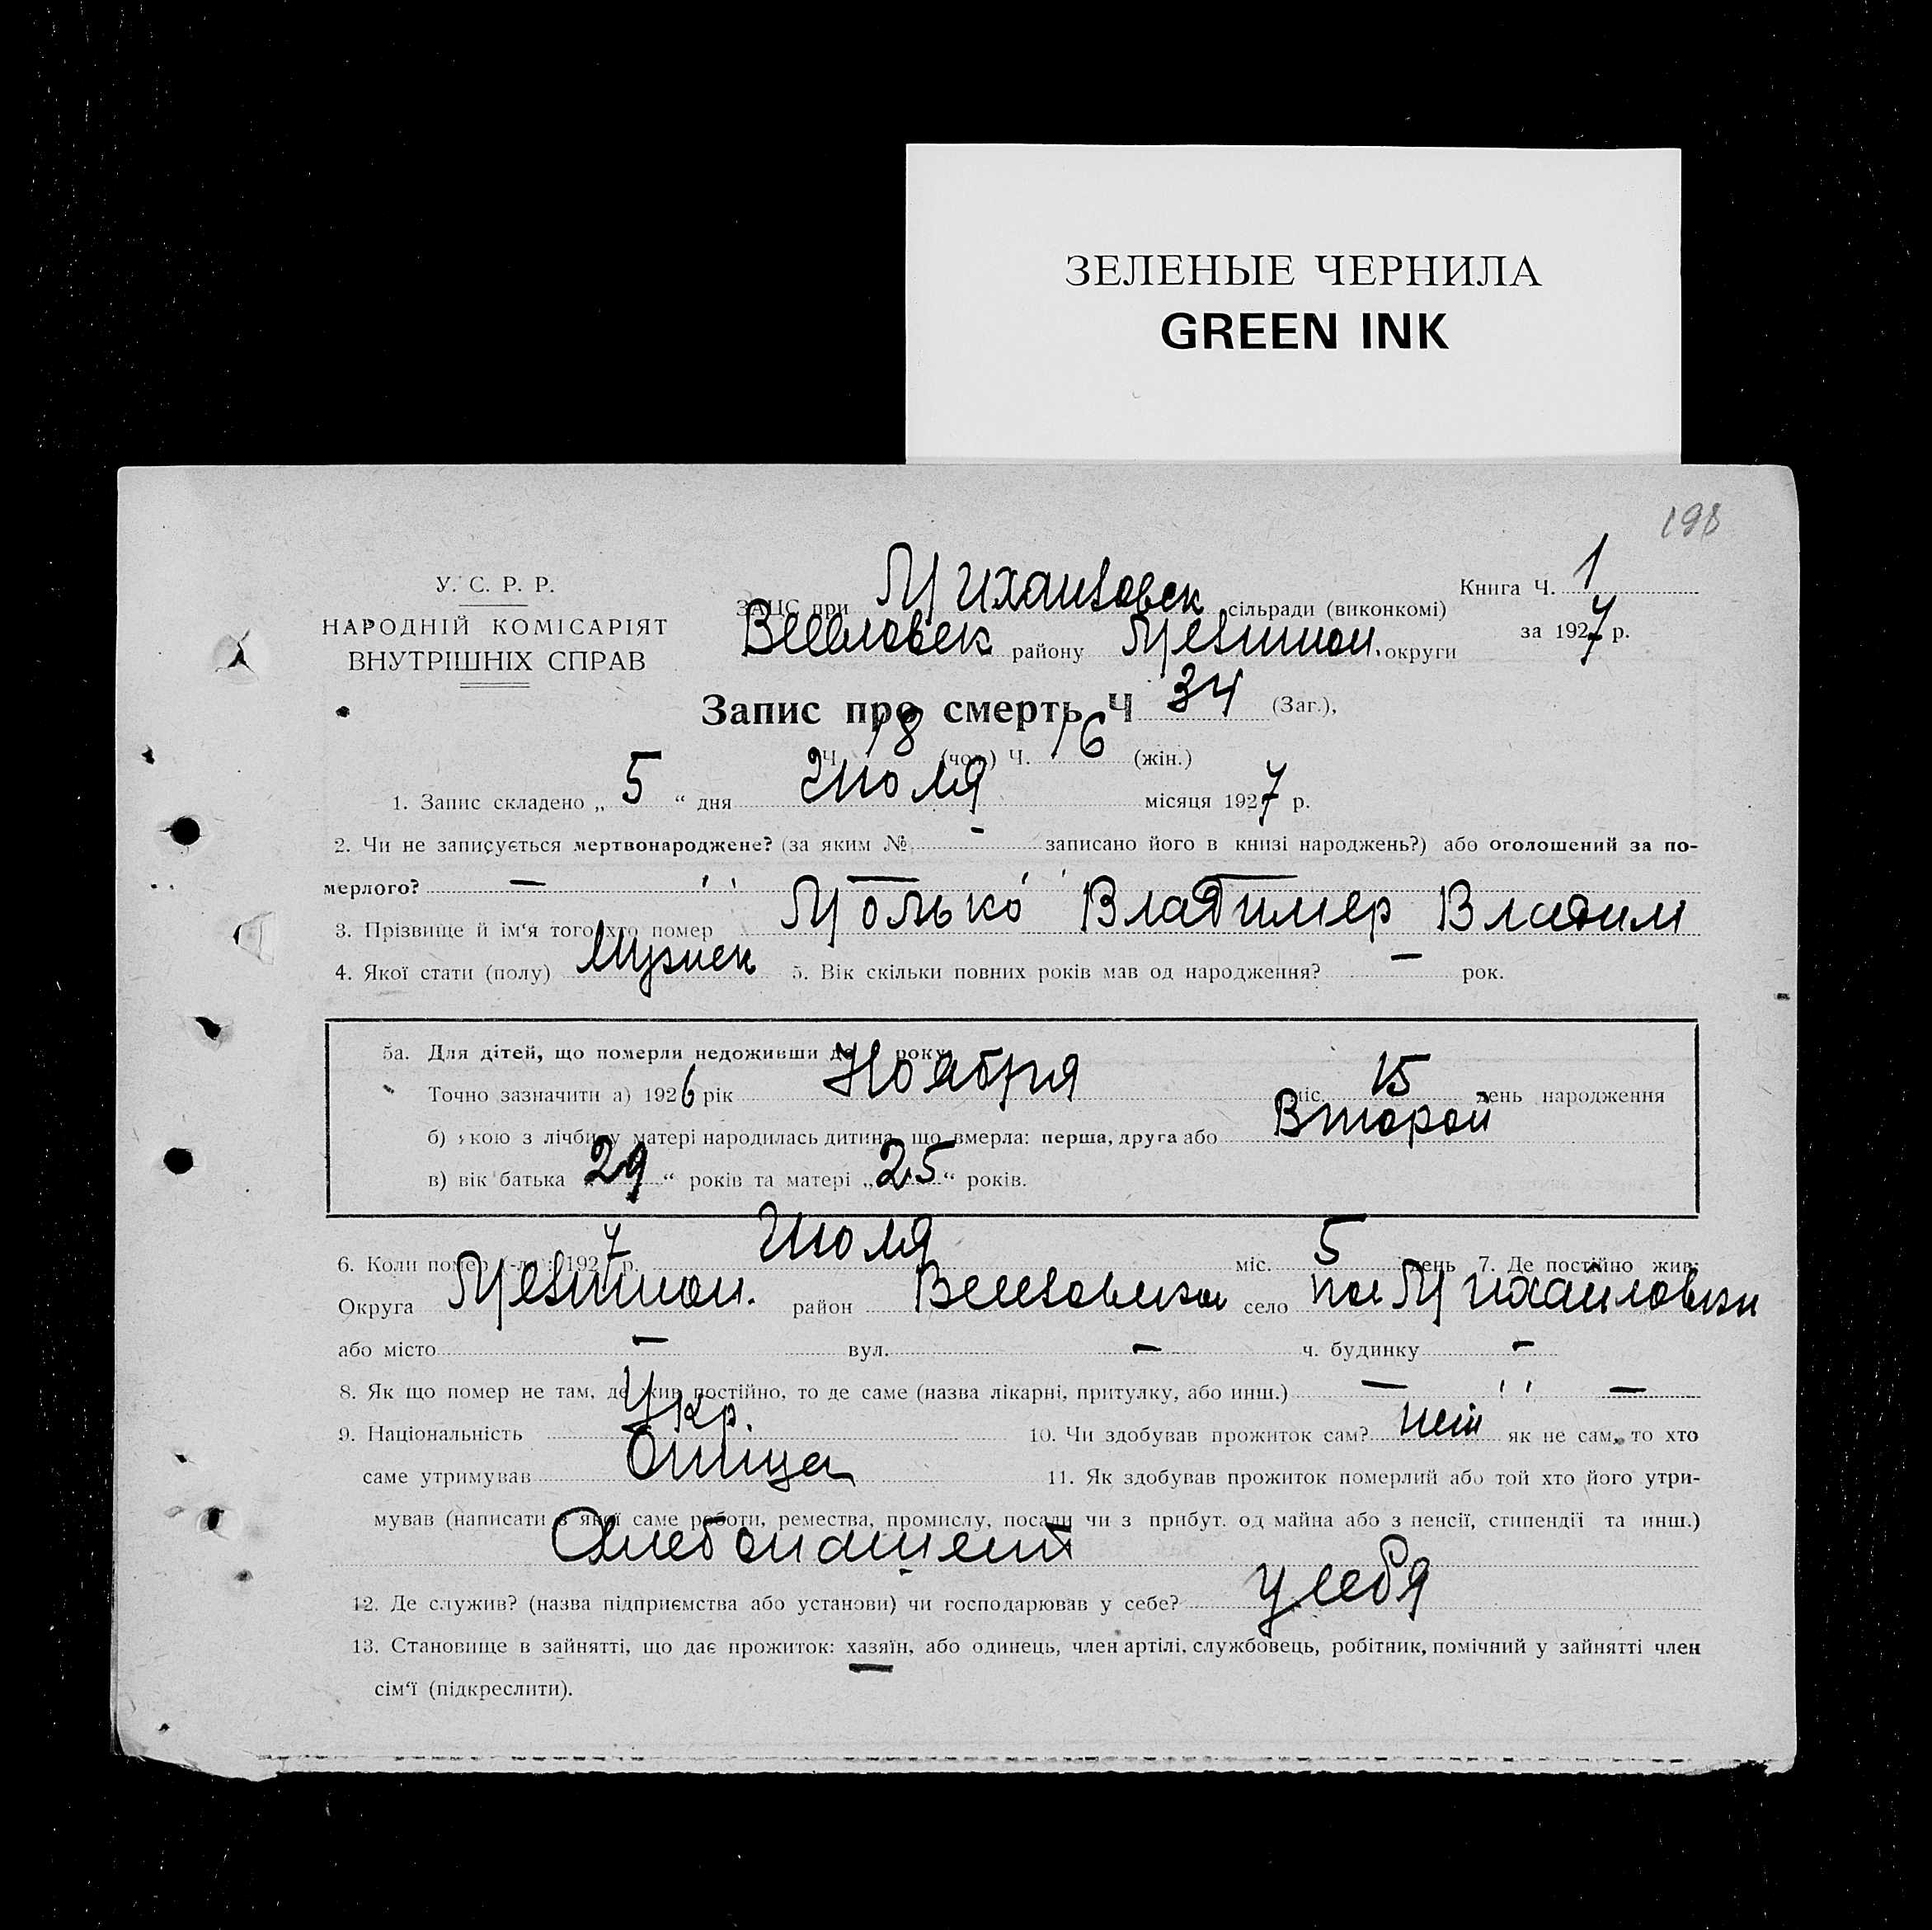 ЗЕЛЕНЫЕ ЧЕРНИЛА
GREEN INK
198
У. С. Р. Р.
НАРОДНІЙ КОМІСАРІЯТ
ВНУТРІШНІХ СПРАВ
ЗАЦС при Михайловск сільради (виконкомі)
Веселовск району Мелитоп. округи
Книга Ч. 1
за 1927 р.
Запис про смерть Ч 34 (Заг.),
Ч. 18 (чол.) Ч. 16 (жін.)
1. Запис складено „ 5 “ дня Июля місяця 1927 р.
2. Чи не записується мертвонароджене? (за яким № - записано його в книзі народжень?) або оголошений за по-
мерлого? —
3. Прізвище й ім‘я того хто помер Владимер Владим
4. Якої стати (полу) Мужск 5. Вік скільки повних років мав од народження? — рок.
5а. Для дітей, що померли недоживши до року
Точно зазначити а) 1926 рік Ноября міс. 15 день народження
б) якою з лічби у матері народилась дитина, що вмерла: перша, друга або Второй
в) вік батька „ 29 “ років та матері „ 25 “ років.
6. Коли помер (-ла): 1927 р. Июля міс. 5 день 7. Де постійно жив:
Округа Мелитоп. район Веселовский село Михайловки
або місто — вул. — ч. будинку —
8. Як що помер не там, де жив постійно, то де саме (назва лікарні, притулку, або инш.) — ‘ ‘ —
9. Національність Укр. 10. Чи здобував прожиток сам? нет як не сам, то хто
саме утримував Отца 11. Як здобував прожиток померлий або той хто його утри-
мував (написати з якої саме роботи, ремества, промислу, посади чи з прибут. од майна або з пенсії, стипендії та инш.)
Хлебопашест
12. Де служив? (назва підприємства або установи) чи господарював у себе? у себя
13. Становище в зайнятті, що дає прожиток: хазяїн, або одинець, член артілі, службовець, робітник, помічний у зайнятті член
сім‘ї (підкреслити).